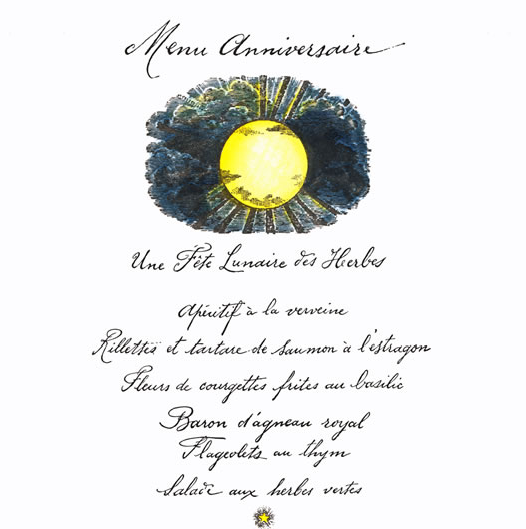 Menu Anniversaire
Une Fête Lunaire des Herbes
Apéritif à la verveine
Rillettes et tartare de saumon à l'estragon
Fleurs de courgettes frites au basilic
Baron d'agneau royal
Flageolets au thym
Salade aux herbes vertes